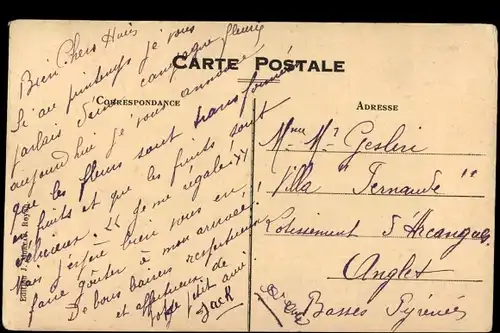 CARTE POSTALE
CORRESPONDANCE
ADRESSE
Bien Chers Amis
Si au printemps je vous
parlais d'une campagne fleurie
aujourd'hui je vous annonce
que les fleurs sont transformées
en fruits et que les fruits sont
délicieux. " Je me régale! "
Mais j'espère bien vous en
faire goûter à mon arrivée
De bons baisers respectueux
et affectueux de
votre petit ami
Jack
Mme Mr Geslin
Villa "Fernande"
Lotissement d'Arcangues
Anglet
Basses Pyrénées